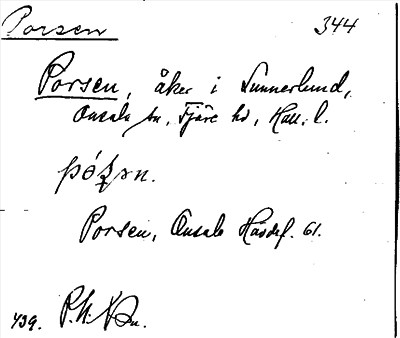 Porsen 344
Porsen, åker i Sunnerlund,
Onsala sn, Fjäre hd, Hall. l.
Porsen, Onsala Hdskf. 61.
439. P. N.